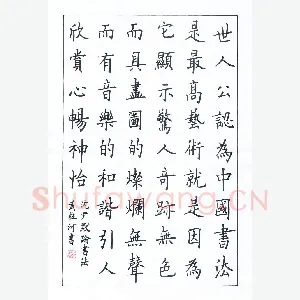 世人公認為中國書法
是最高藝術就是因為
它顯示驚人奇跡無色
而具畫圖的燦爛無聲
而有音樂的和諧引人
欣賞心暢神怡
沈尹默論書法
河書
Shufawang.CN